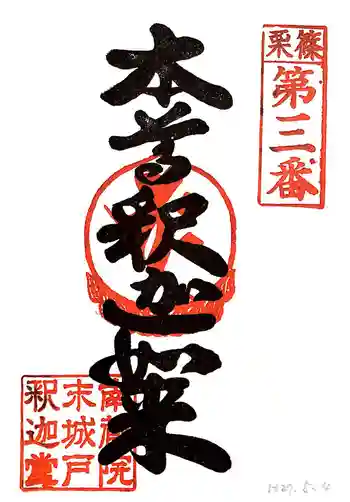 篠栗
第三番
本尊釈迦如来
南蔵院
末城戸
釈迦堂
H27. 5. 4